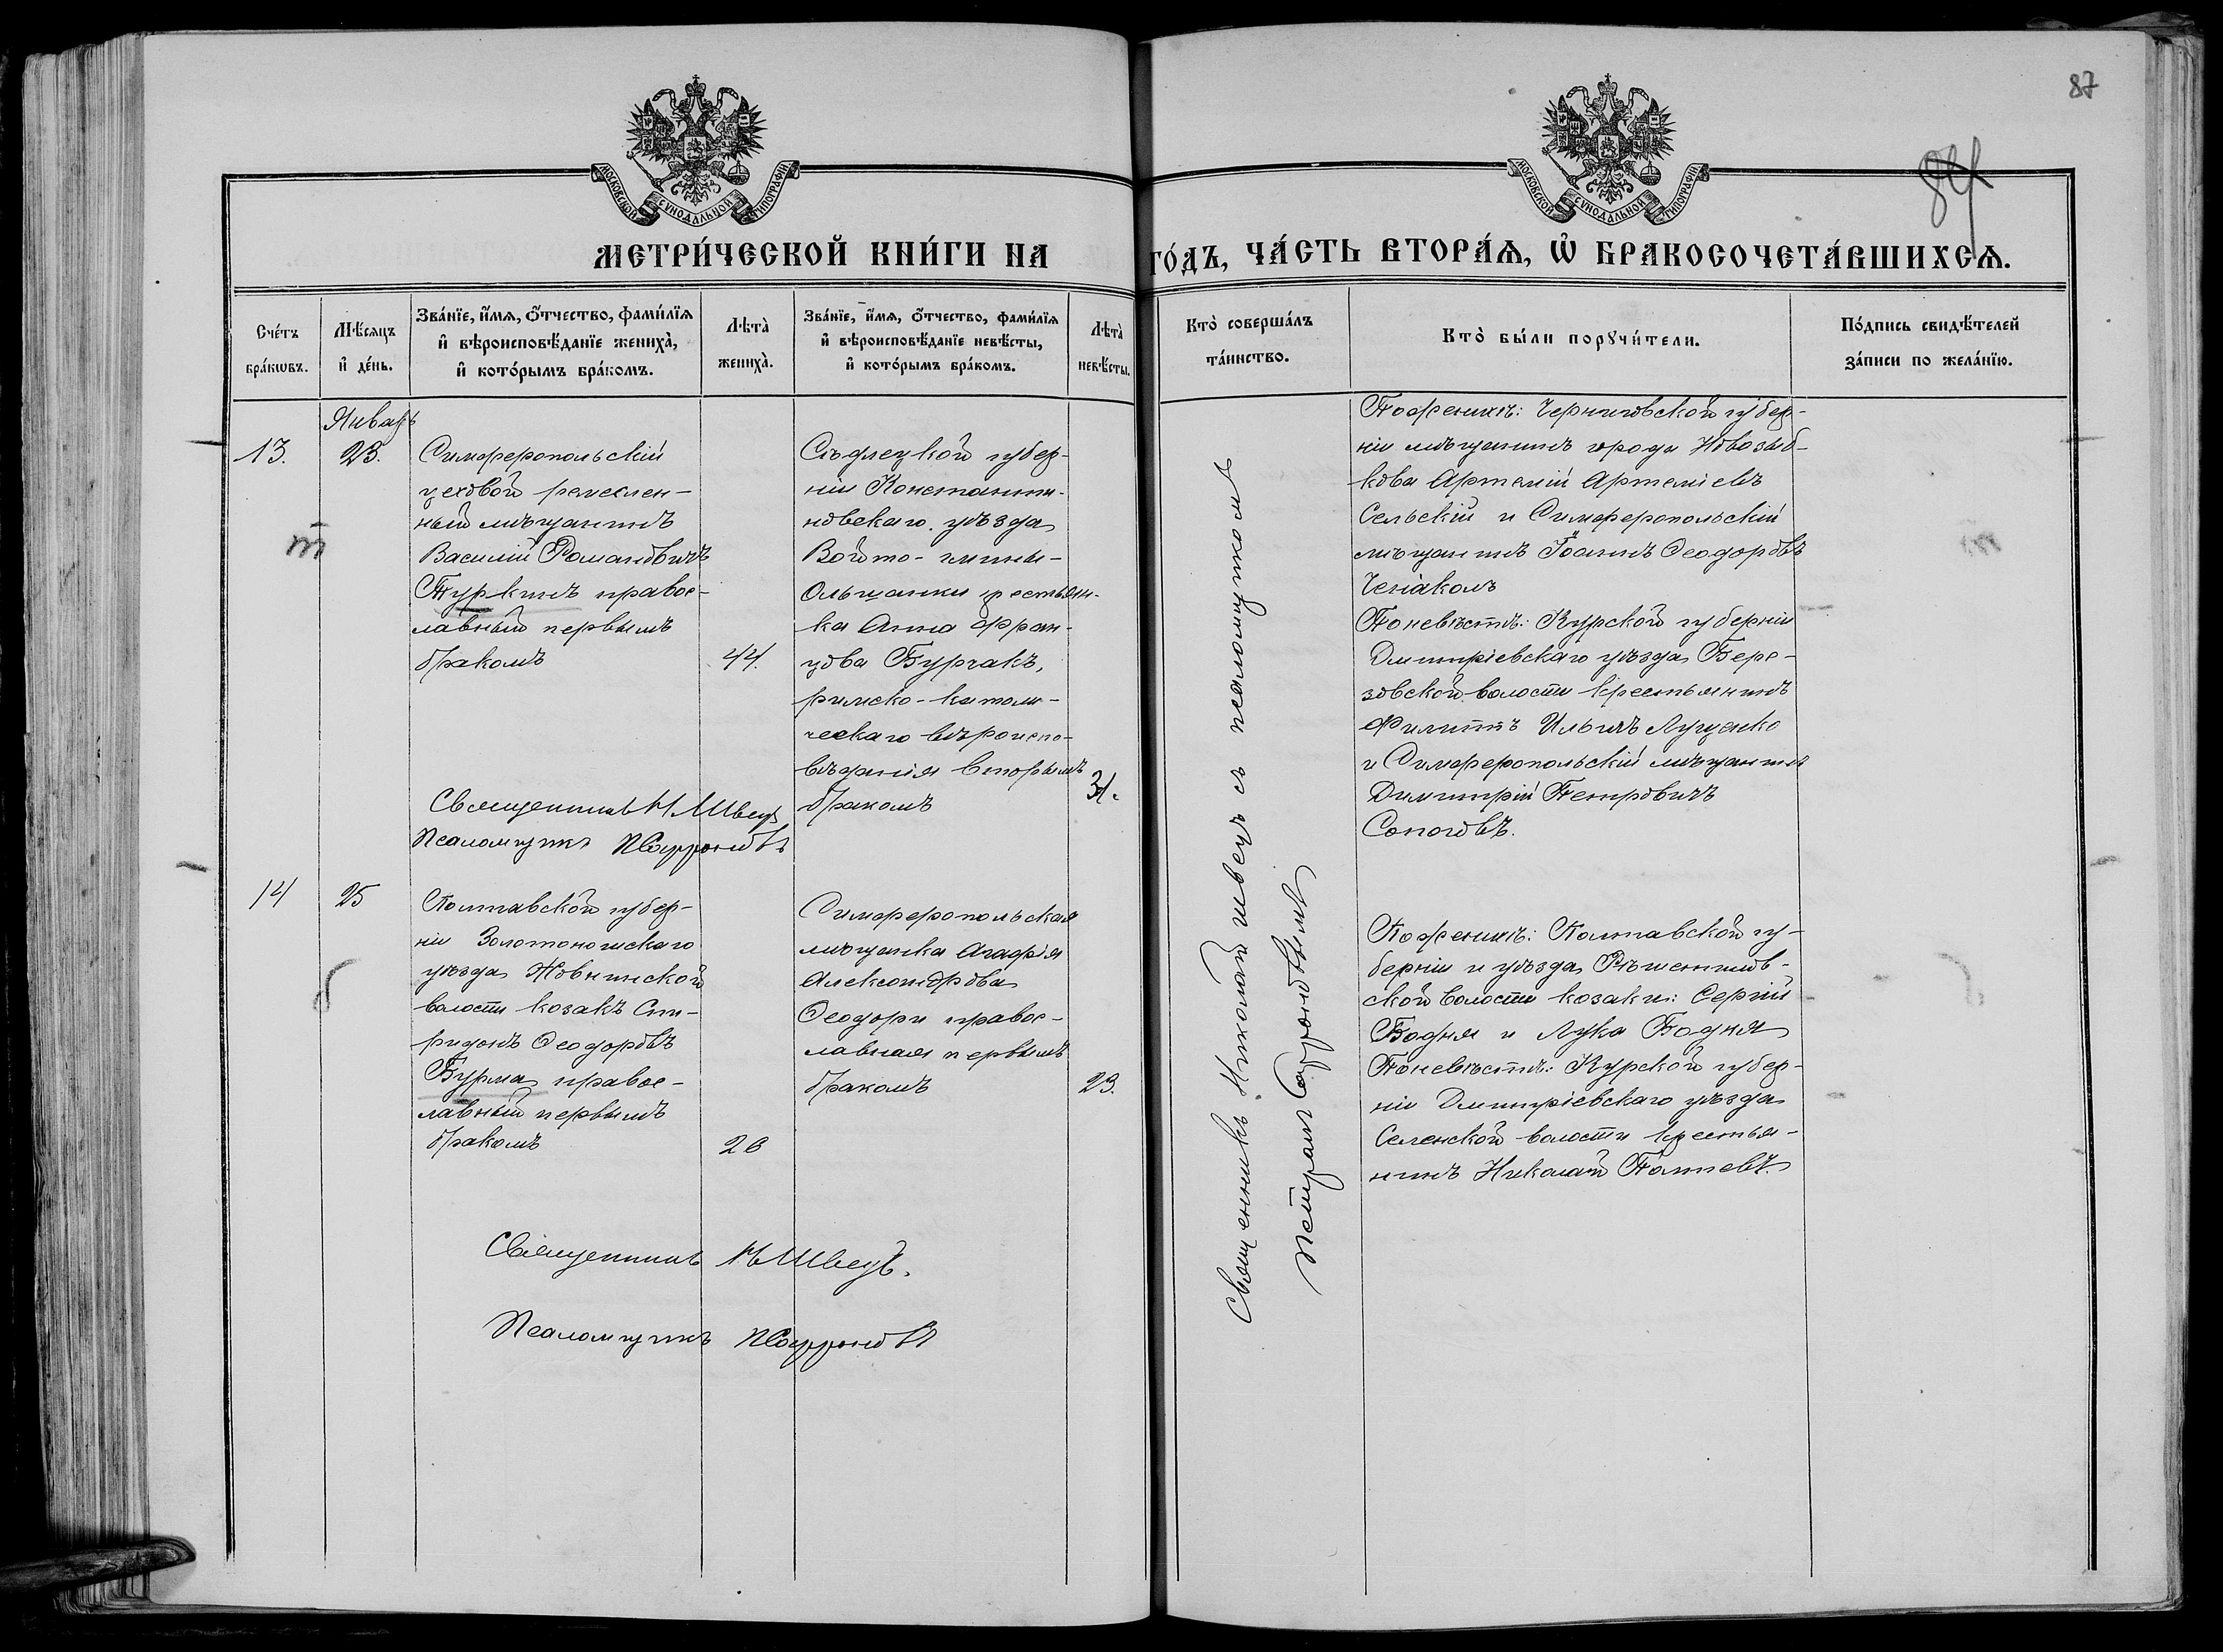 87
84
МОСКОВСКОЙ СУНОДАЛЬНОЙ ТИПОГРАФІИ
МОСКОВСКОЙ СУНОДАЛЬНОЙ ТИПОГРАФІИ
МЕТРИ́ЧЕСКОЙ КНИ́ГИ НА ГО́ДЪ, ЧА́СТЬ ВТОРА́Ѧ, Ѽ БРАКОСОЧЕТА́ВШИХСѦ.
Сче́тъ
бра́кѡвъ.
Мѣ́сяцъ
и҆ де́нь.
Зва́нїе, и҆́мѧ, ѻ҆́тчество, фами́лїѧ
и҆ вѣроисповѣ́данїе жениха̀,
и҆ кото́рымъ бра́комъ.
Лѣта̀
жениха̀.
Зва́нїе, и҆́мѧ, ѻ҆́тчество, фами́лїѧ
и҆ вѣроисповѣ́данїе невѣ́сты,
и҆ кото́рымъ бра́комъ.
Лѣта̀
невѣ́сты.
Кто̀ соверша́лъ
та́инство.
Кто̀ бы́ли порꙋчи́тели.
По́дпись свидѣ́телей
за́писи по жела́нїю.
Январь
13.
23.
Симферопольскій
цеховой ремеслен-
ный мѣщанинъ
Василій Романовичъ
Туркинъ правос-
лавный первымъ
бракомъ
44.
Сѣдлецкой губер-
ніи Константи-
новскаго уѣзда
Войто-гмины-
Ольшанки крестьян-
ка Анна Фран-
цова Бурчакъ,
римско-католи-
ческаго вѣроиспо-
вѣданія вторымъ
бракомъ
31.
Священникъ Н Швецъ
Псаломщикъ П Софроновъ
Священникъ Николай Швецъ съ псаломщикомъ
Петромъ Софроновымъ
По женихѣ: Черниговской губер-
ніи мѣщанинъ города Новозыб-
кова Артемій Артеміевъ
Сельскій и Симферопольскій
мѣщанинъ Іоаннъ Ѳеодоровъ
По невѣстѣ: Курской губерніи
Димитріевскаго уѣзда Бере-
зовской волости крестьянинъ
Филиппъ Ильичъ Луценко
и Симферопольскій мѣщанинъ
Димитрій Петровичъ
Сопоговъ.
14
25
Полтавской губер-
ніи Золотоношскаго
уѣзда
волости козакъ Спи-
ридонъ Ѳеодоровъ
Бурма правос-
лавный первымъ
бракомъ
26
Симферопольская
мѣщанка Агафія
Александрова
Ѳеодори правос-
лавная первымъ
бракомъ
23.
По женихѣ: Полтавской гу-
берніи и уѣзда Рѣшетилов-
ской волости козаки: Сергій
Бодня и Лука Бодня
По невѣстѣ: Курской губер-
ніи Димитріевскаго уѣзда
Селенской волости крестья-
нинъ Николай
Священникъ Н Швецъ.
Псаломщикъ П Софроновъ